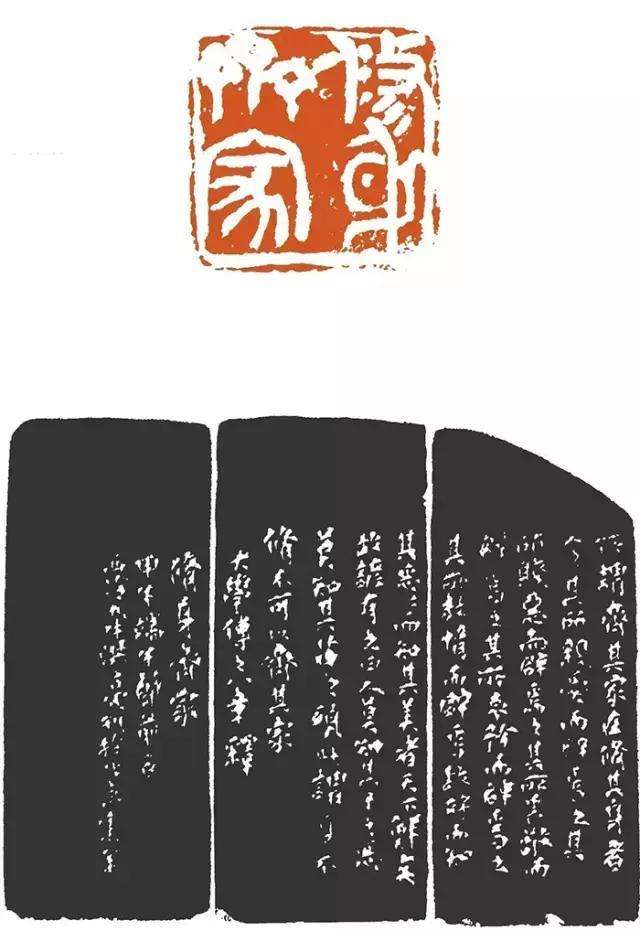 脩身
齊家
所謂齊其家在脩其身者
人之其所親愛而辟焉之其
所賤惡而辟焉之其所畏敬而
辟焉之其所哀矜而辟焉之
其所敖惰而辟焉故好而知
其惡〻而知其美者天下鮮矣
故諺有之曰人莫知其子之惡
莫知其苗之碩此謂身不
脩不可以齊其家
大學傳之八章釋
脩身齊家
甲午端午節